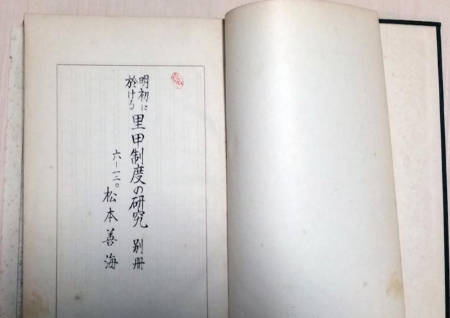 明初に
於ける
里甲制度の研究 別冊
六ー一二〇
松本善海